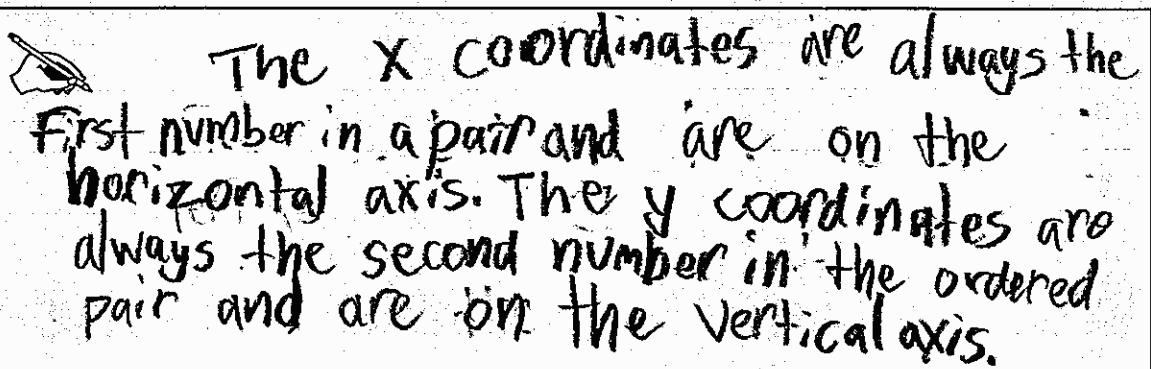 The X coordinates are always the
First number in a pair and are on the
horizontal axis. The y coordinates are
always the second number in the ordered
pair and are on the vertical axis.